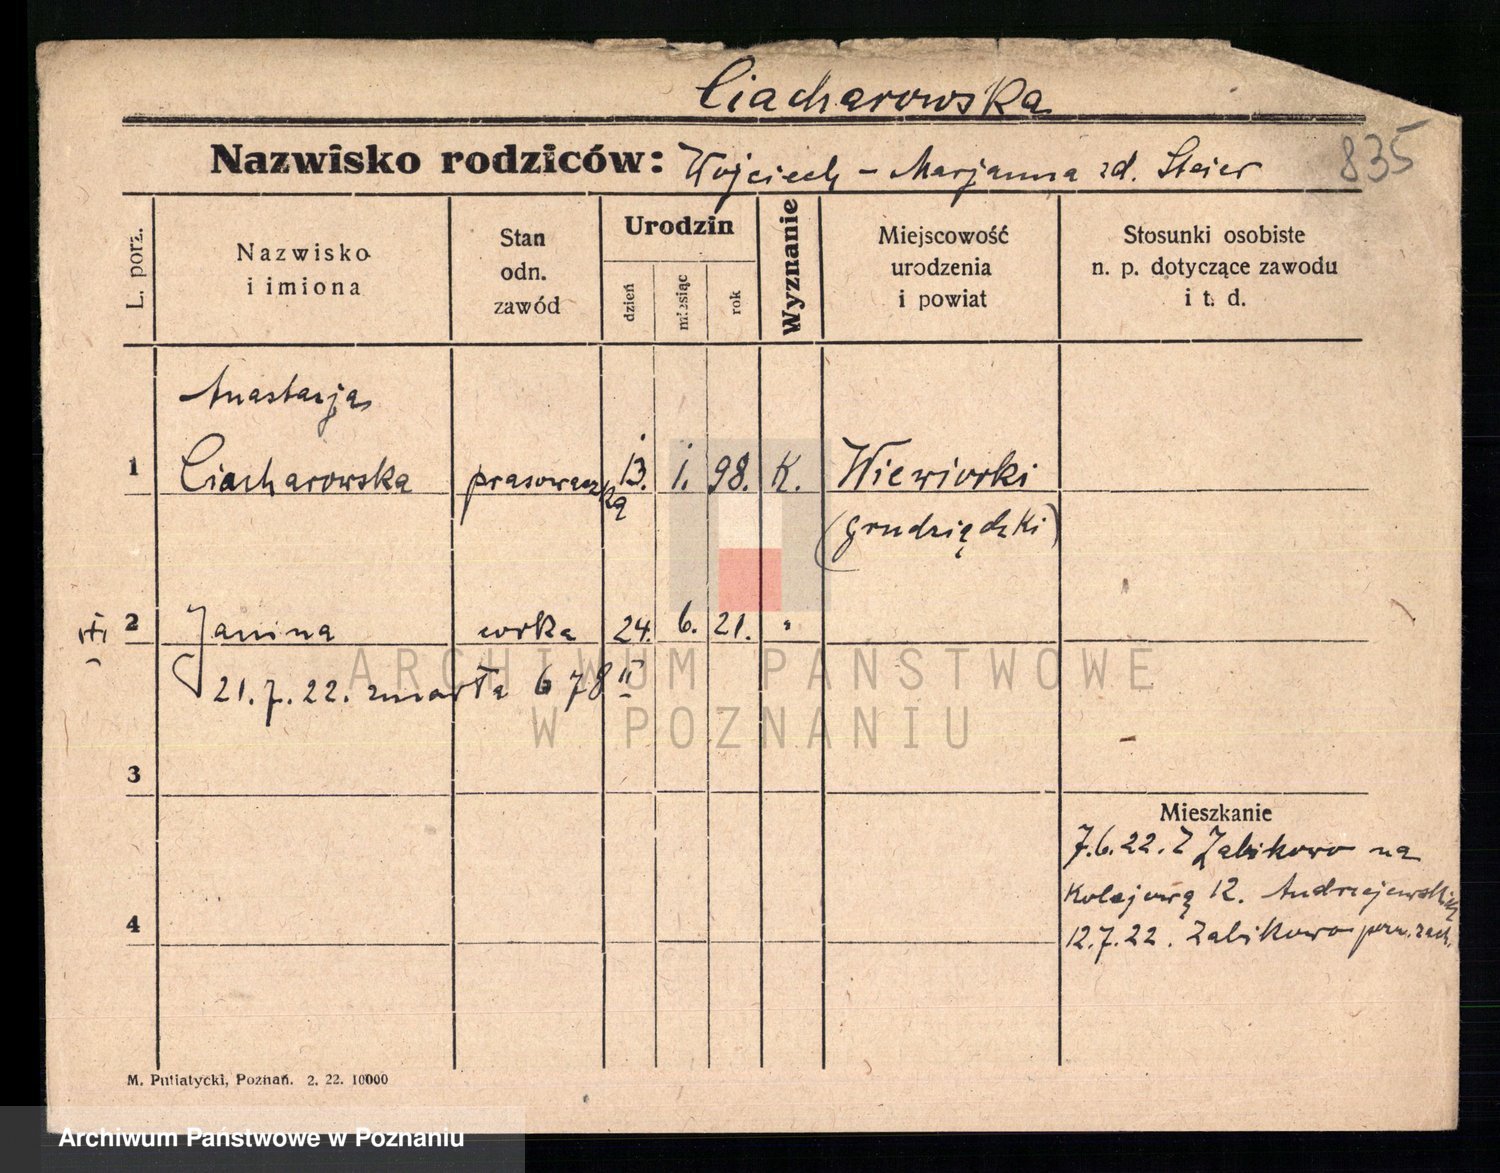 Ciacharowska
Nazwisko rodziców: Wojciech - Marjanna zd. Steier
835
L. porz.
Nazwisko i imiona
Stan odn. zawód
Urodzin
dzień
miesiąc
rok
Wyznanie
Miejscowość urodzenia i powiat
Stosunki osobiste n. p. dotyczące zawodu i t. d.
Anastazja
1 Ciacharowska prasowaczka 13. 1. 98. K. Wiewiorki
(grudziądzki)
2 Janina corka 24. 6. 21. "
21. 7. 22. zmarła 678 II
3
Mieszkanie
7.6.22. Z Żabikowo na
Kolejową 12. Andrzejewskich
4
12.7.22. Zabikowo pow. zach.
M. Putiatycki, Poznań. 2. 22. 10000
ARCHIWUM PAŃSTWOWE
W POZNANIU
Archiwum Państwowe w Poznaniu